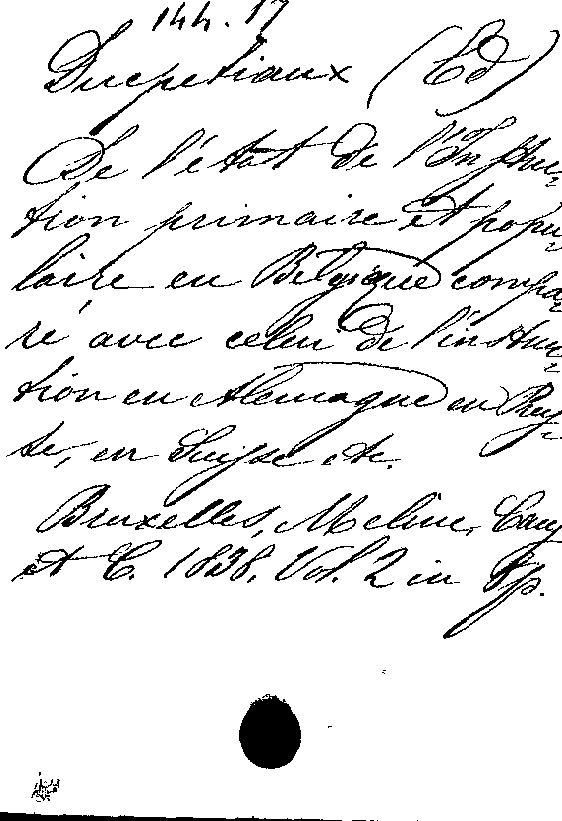 144.17
Ducpetiaux (Ed)
De l'état de l'Instruc-
tion primaire et popu-
laire en Belgique compa-
ré avec celui de l'instruc-
tion en Allemagne en Prus-
se, en Suisse etc.
Bruxelles, Meline, Cany
et C. 1838. Vol. 2 in 8p.